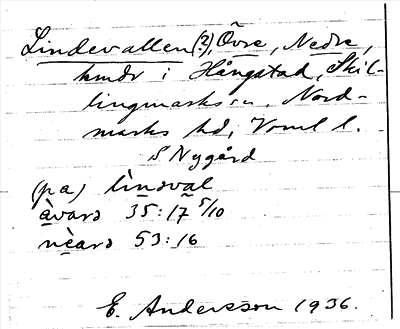 Lindevallen (?), Övre, Nedre,
hmdr i Hångstad, Skil-
lingmarks sn, Nord-
marks hd, Vrml l.
S Nygård
(pa) lìndval
àvarə 35:17 5/10
nèarə 53:16
E. Andersson 1936.